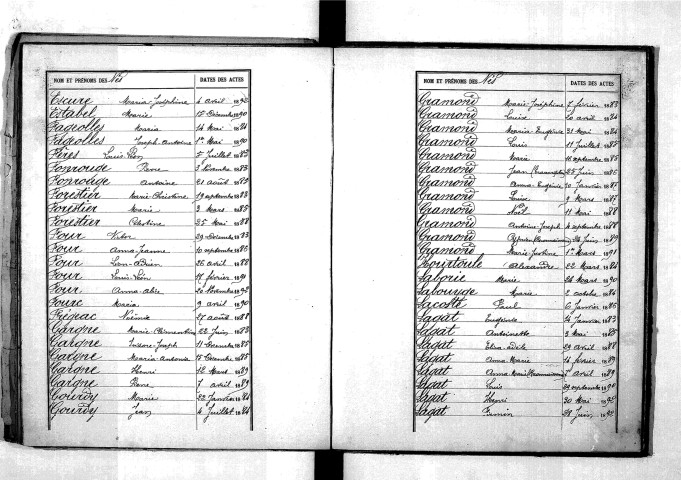 NOM ET PRÉNOMS DES Nés DATES DES ACTES
Escure Maria-Joséphine 4 avril 1892
Estabel Marie 15 Décembre 1890
Fageolles Maria 14 Mai 1884
Fageolles Joseph-Antoine 1er Mai 1890
Fères Louis-Léon 5 Juillet 1883
Fonrouge Pierre 3 Novembre 1883
Fonrouge Antoine 21 août 1885
Forestier Marie-Christine 19 septembre 1883
Forestier Marie 3 Mars 1885
Forestier Célestine 25 Mai 1888
Four Victor 29 Décembre 1883
Four Anna-Jeanne 10 septembre 1885
Four Léon-Adrien 25 avril 1888
Four Louis-Léon 17 février 1891
Four Anna-alix 20 Novembre 1892
Fourc Maria 9 avril 1890
Frégeac Noémie 27 août 1888
Gargne Marie-Clémentine 22 Juin 1883
Gargne Joseph 11 Décembre 1885
Gargne Maria-Antonia 15 Décembre 1885
Gargne Henri 12 Mars 1889
Gargne Pierre 7 avril 1889
Gourdy Marie 22 Janvier 1884
Gourdy Jean 4 Juillet 1884
NOM ET PRÉNOMS DES Nés DATES DES ACTES
Gramond Marie-Joséphine 7 février 1883
Gramond Louise 20 avril 1884
Gramond Maria-Eugénie 31 Mai 1884
Gramond Louis 11 Juillet 1885
Gramond Marie 11 septembre 1885
Gramond Jean 25 Juin 1886
Gramond Anna-Eugénie 10 Janvier 1887
Gramond Louise 9 Mars 1887
Gramond Noël 11 Mai 1888
Gramond Antoine-Joseph 4 septembre 1888
Gramond 24 Juin 1889
Gramond Marie-Justine 1er Mars 1891
Hourtoule Alexandre 22 Mars 1886
Laborie Marie 24 Mars 1890
Labouyge Marie 2 octobre 1884
Lacoste Paul 6 Janvier 1886
Lagat Eugénie 24 Janvier 1883
Lagat Antoinette 3 Mai 1885
Lagat Elisa-adèle 29 avril 1888
Lagat Anna-Marie 14 février 1889
Lagat Anna-Marie 7 avril 1889
Lagat Louis 29 septembre 1890
Lagat Henri 30 Mai 1892
Lagat Firmin 28 Juin 1892